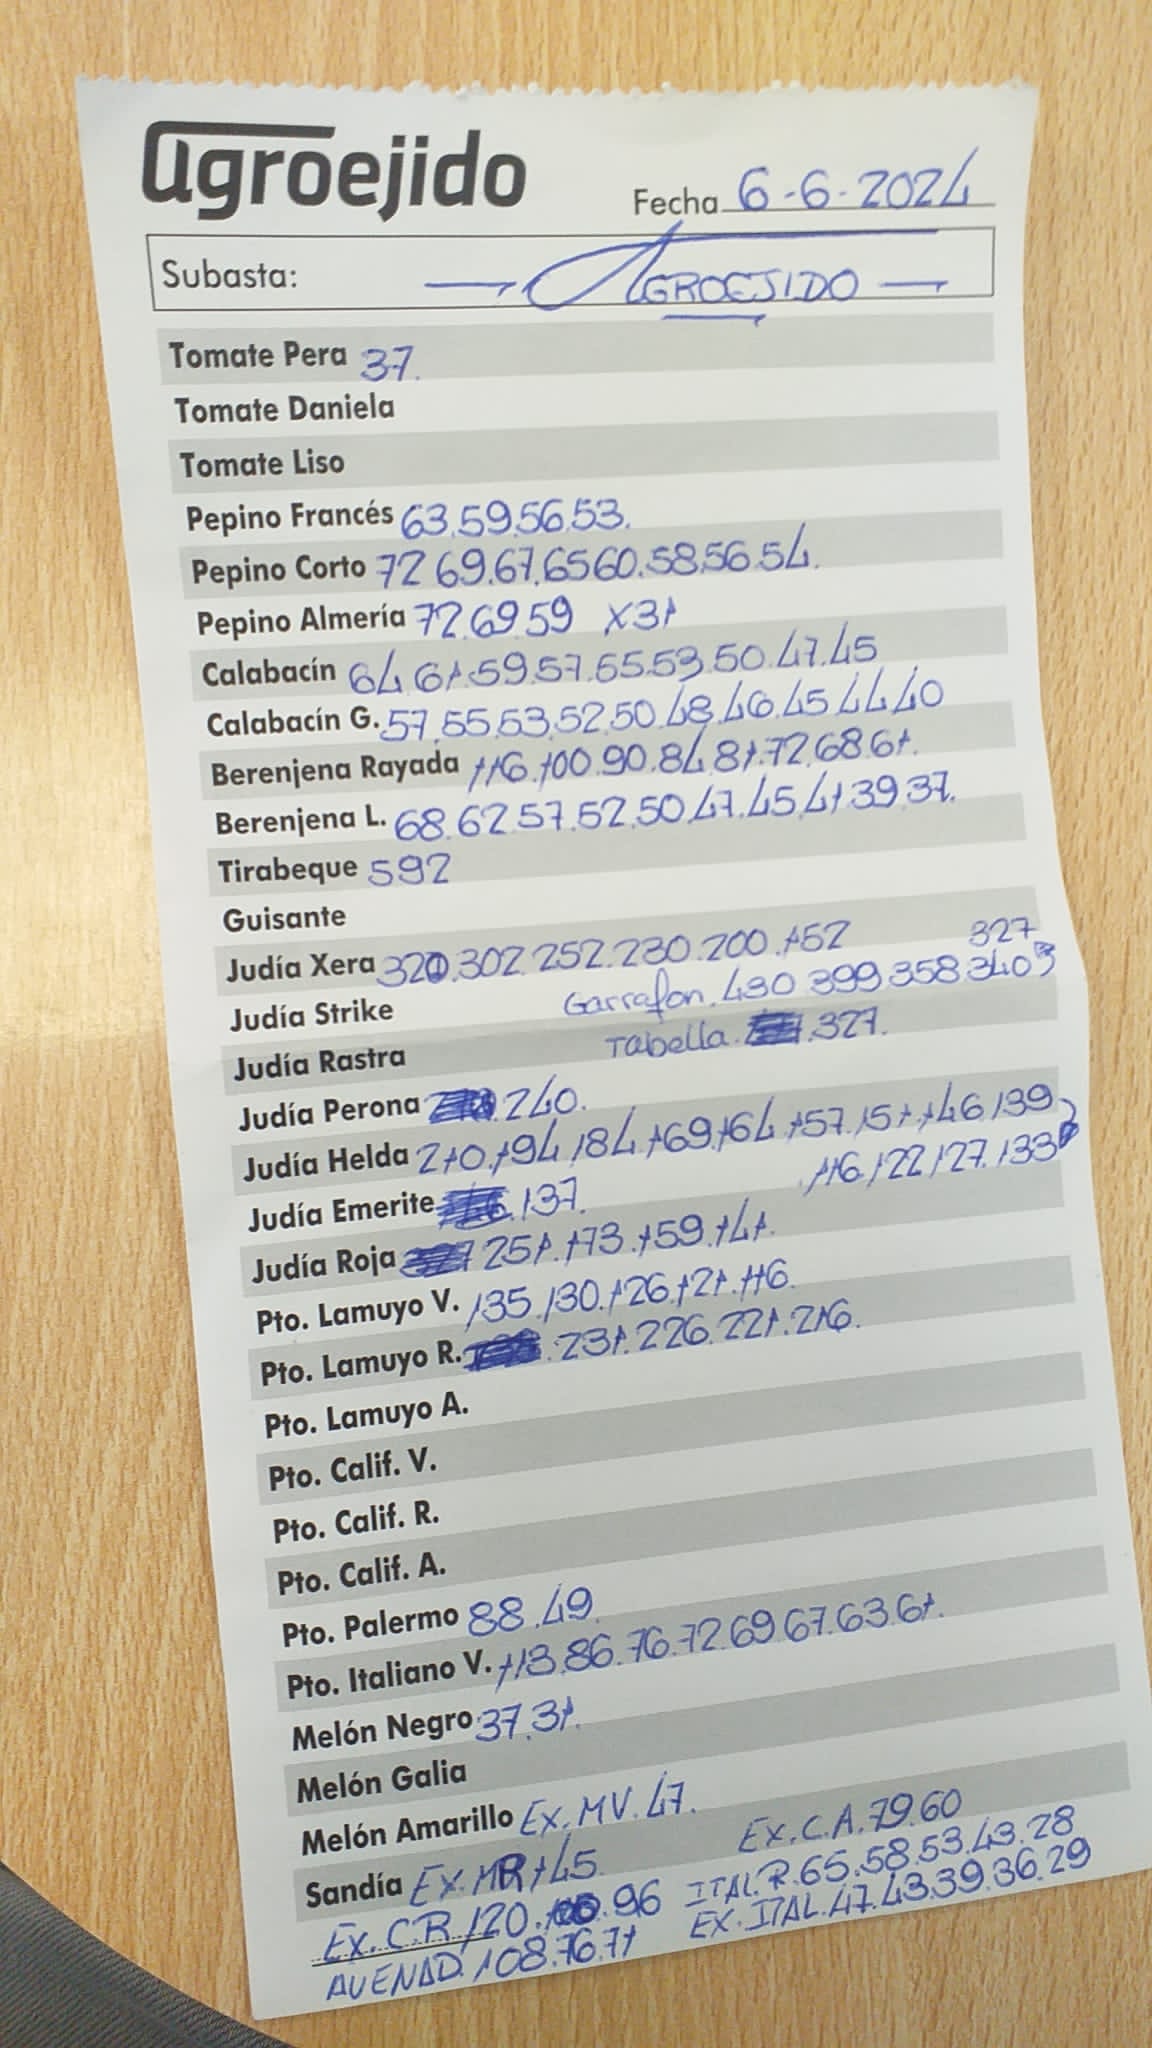 agroejido
Fecha 6-6-2024
Subasta: AGROEJIDO
Tomate Pera 37.
Tomate Daniela
Tomate Liso
Pepino Francés 63.59.56.53.
Pepino Corto 72 69.67.65 60.58.56.54.
Pepino Almería 72.69.59 X31
Calabacín 64 61.59.57.55.53.50.47.45
Calabacín G. 57.55.53.52.50.48.46.45 44 40
Berenjena Rayada 116.100.90.84.81.72.68 61.
Berenjena L. 68.62.57.52.50.47.45.41 39 37.
Tirabeque 592
Guisante
Judía Xera 320.302 252.230.200.152
327
Judía Strike Garrafon.430 399 358 340
Judía Rastra Tabella. 327.
Judía Perona 240.
Judía Helda 210.194 184.169.164.157.151.146 139
116.122 127.133
Judía Emerite 137.
Judía Roja 251.173.159.141.
Pto. Lamuyo V. 135.130.126.121.116.
Pto. Lamuyo R. 231.226.221.216.
Pto. Lamuyo A.
Pto. Calif. V.
Pto. Calif. R.
Pto. Calif. A.
Pto. Palermo 88.49
Pto. Italiano V. 113.86.76.72.69 67.63.61.
Melón Negro 37.31.
Melón Galia
Melón Amarillo Ex.MV.47.
Sandía Ex.MR 145. Ex.C.A.79.60
Ex.C.R 120. 96 ITAL.R.65.58.53.43.28
AVENAD.108.76.71 EX.ITAL.47.43.39.36.29